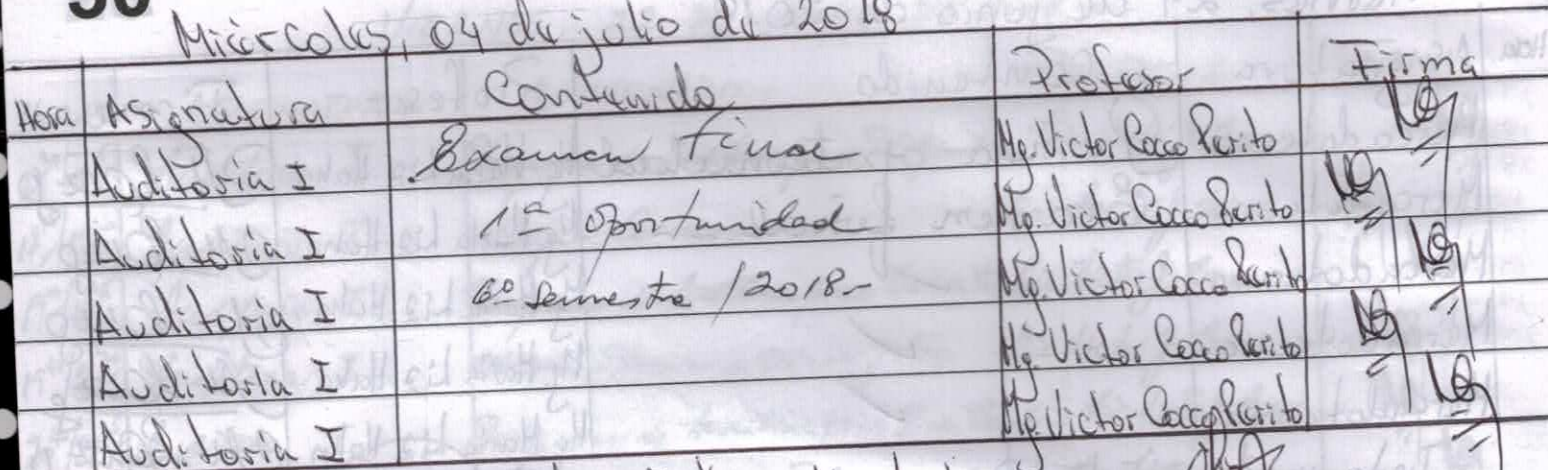 Miércoles, 04 de julio de 2018
Hora Asignatura Contenido Profesor Firma
Auditoria I Examen Final Mg. Victor Cocco Perito
Auditoria I 1ª oportunidad Mg. Victor Cocco Perito
Auditoria I 6º semestre / 2018- Mg. Victor Cocco Perito
Auditoria I Mg. Victor Cocco Perito
Auditoria I Mg. Victor Cocco Perito